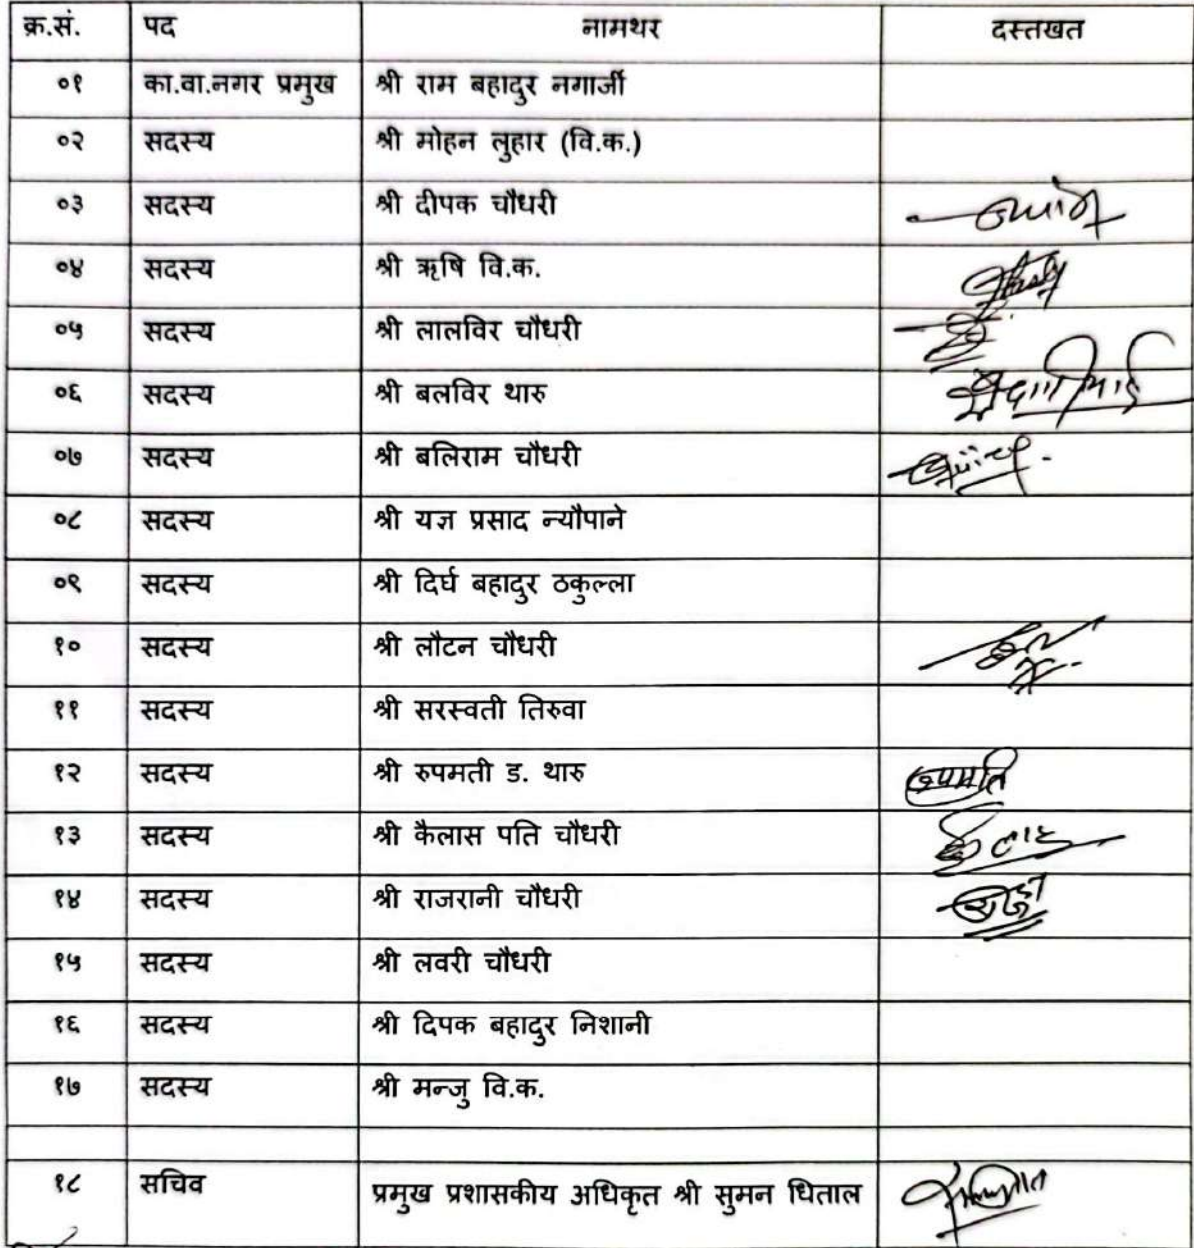 क्र.सं. पद नामथर दस्तखत
०१ का.वा.नगर प्रमुख श्री राम बहादुर नगार्जी
०२ सदस्य श्री मोहन लुहार (वि.क.)
०३ सदस्य श्री दीपक चौधरी
०४ सदस्य श्री ऋषि वि.क.
०५ सदस्य श्री लालविर चौधरी
०६ सदस्य श्री बलविर थारु
०७ सदस्य श्री बलिराम चौधरी
०८ सदस्य श्री यज्ञ प्रसाद न्यौपाने
०९ सदस्य श्री दिर्घ बहादुर ठकुल्ला
१० सदस्य श्री लौटन चौधरी
११ सदस्य श्री सरस्वती तिरुवा
१२ सदस्य श्री रुपमती ड. थारु रुपमति
१३ सदस्य श्री कैलास पति चौधरी
१४ सदस्य श्री राजरानी चौधरी
१५ सदस्य श्री लवरी चौधरी
१६ सदस्य श्री दिपक बहादुर निशानी
१७ सदस्य श्री मन्जु वि.क.
१८ सचिव प्रमुख प्रशासकीय अधिकृत श्री सुमन धिताल